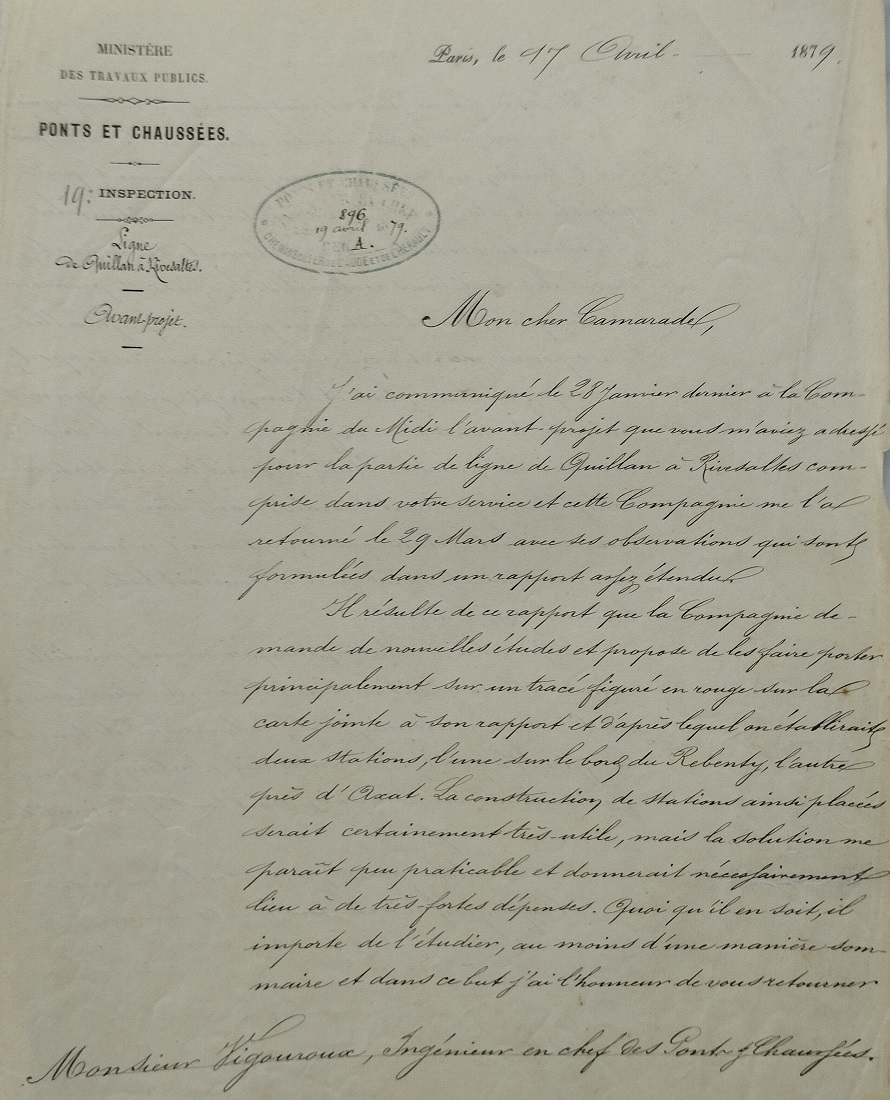 MINISTÈRE
DES TRAVAUX PUBLICS.
PONTS ET CHAUSSÉES.
19e INSPECTION.
Ligne
de Quillan à Rivesaltes.
Avant-projet.
Paris, le 17 Avril 1879.
PONTS ET CHAUSSÉES
896
19 avril 1879.
A.
CHEMINS DE FER DE L'AUDE ET DE L'HÉRAULT
Mon cher Camarade,
J'ai communiqué le 28 Janvier dernier à la Com-
pagnie du Midi l'avant-projet que vous m'aviez adressé
pour la partie de ligne de Quillan à Rivesaltes com-
prise dans votre service et cette Compagnie me l'a
retourné le 29 Mars avec ses observations qui sont
formulées dans un rapport assez étendu.
Il résulte de ce rapport que la Compagnie de-
mande de nouvelles études et propose de les faire porter
principalement sur un tracé figuré en rouge sur la
carte jointe à son rapport et d'après lequel on établirait
deux stations, l'une sur le bord du Rebenty, l'autre
près d'Axat. La construction de stations ainsi placées
serait certainement très-utile, mais la solution me
paraît peu praticable et donnerait nécessairement
lieu à de très-fortes dépenses. Quoi qu'il en soit, il
importe de l'étudier, au moins d'une manière som-
maire et dans ce but j'ai l'honneur de vous retourner
Monsieur Vigouroux, Ingénieur en chef des Ponts & Chaussées.